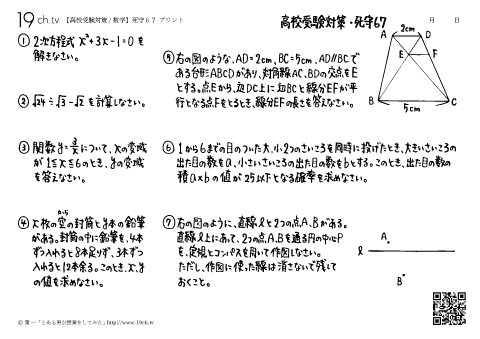 19ch.tv 【高校受験対策/数学】死守67 プリント
高校受験対策・死守67
月 日
① 2次方程式 x²+3x-1=0 を
解きなさい。
② √24÷√3-√2 を計算しなさい。
③ 関数 y=3/x について、xの変域
が 1≦x≦6のとき、yの変域
を答えなさい。
④ x枚の空の封筒とy本の鉛筆
がある。封筒の中に鉛筆を、4本
ずつ入れると8本足りず、3本ずつ
入れると12本余る。このとき、x,y
の値を求めなさい。
⑤ 右の図のような、AD=2cm、BC=5cm、AD//BCで
ある台形ABCDがあり、対角線AC、BDの交点をE
とする。点Eから、辺DC上に辺BCと線分EFが平
行となる点Fをとるとき、線分EFの長さを答えなさい。
A 2cm D
E F
B 5cm C
⑥ 1から6までの目のついた大、小2つのさいころを同時に投げたとき、大きいさいころの
出た目の数をa、小さいさいころの出た目の数をbとする。このとき、出た目の数の
積a×bの値が25以下となる確率を求めなさい。
⑦ 右の図のように、直線ℓと2つの点A、Bがある。
直線ℓ上にあって、2つの点A、Bを通る円の中心P
を、定規とコンパスを用いて作図しなさい。
ただし、作図に使った線は消さないで残して
おくこと。
A
ℓ
B
© 葉一「とある男が授業をしてみた」http://www.19ch.tv